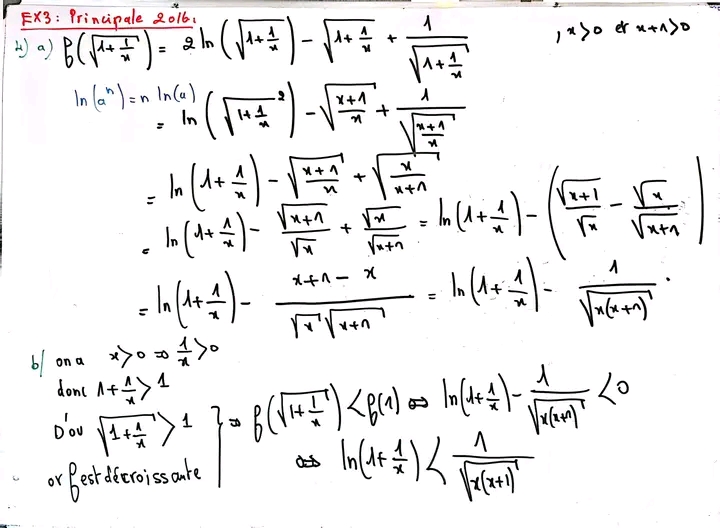 EX3: Principale 2016.
4) a) f(√(1+1/x)) = 2 ln(√(1+1/x)) - √(1+1/x) + 1/√(1+1/x) , x>0 et x+1>0
ln(aⁿ) = n ln(a)
= ln(√(1+1/x)²) - √((x+1)/x) + 1/√((x+1)/x)
= ln(1+1/x) - √((x+1)/x) + √(x/(x+1))
= ln(1+1/x) - √(x+1)/√x + √x/√(x+1) = ln(1+1/x) - (√(x+1)/√x - √x/√(x+1))
= ln(1+1/x) - (x+1-x)/(√x √(x+1)) = ln(1+1/x) - 1/√(x(x+1)).
b/ on a x>0 ⇒ 1/x>0
donc 1+1/x > 1
D'où √(1+1/x) > 1 } ⇒ f(√(1+1/x)) < f(1) ⇔ ln(1+1/x) - 1/√(x(x+1)) < 0
or f est décroissante ⇔ ln(1+1/x) < 1/√(x(x+1))